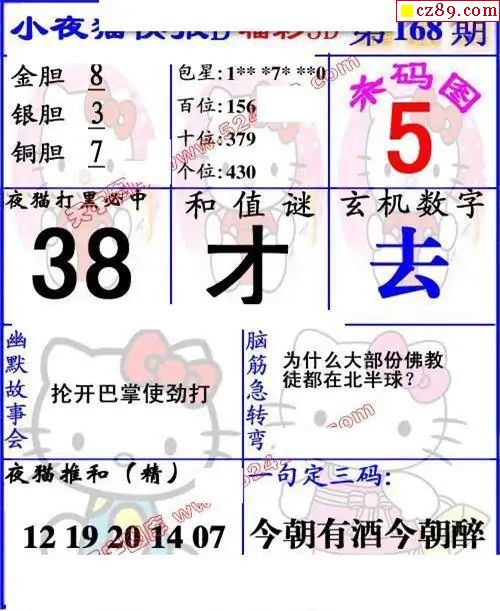 cz89.com
小夜猫快报D 福彩3D 第168期
金胆 8
银胆 3
铜胆 7
包星:1** *7* **0
百位:156
十位:379
个位:430
杀码图
5
夜猫打黑必中
38
和值谜
才
玄机数字
去
幽默故事会
抡开巴掌使劲打
脑筋急转弯
为什么大部份佛教
徒都在北半球?
夜猫推和(精)
12 19 20 14 07
一句定三码:
今朝有酒今朝醉